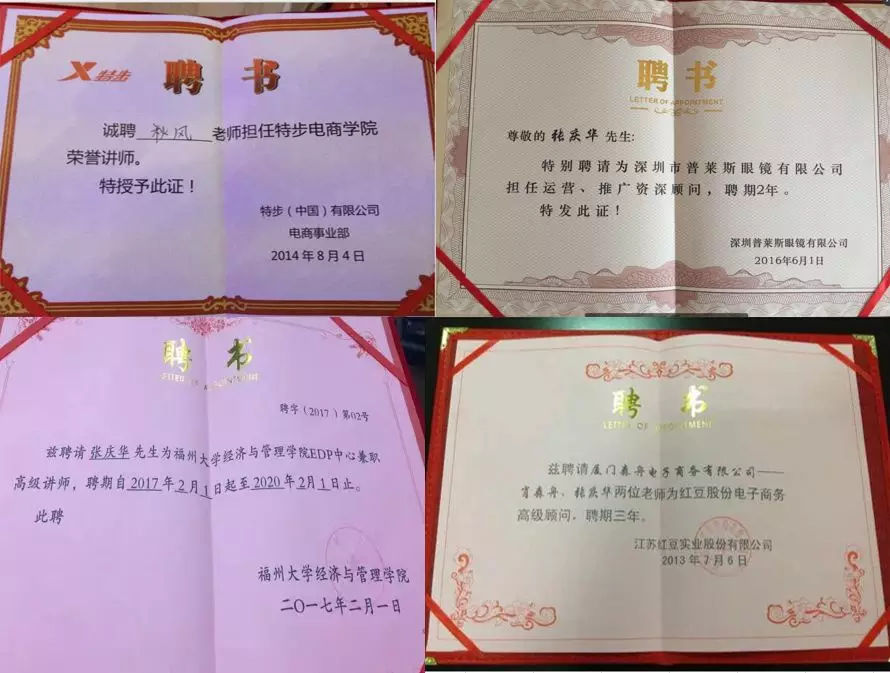 X 特步
聘 书
诚聘 秋风 老师担任特步电商学院
荣誉讲师。
特授予此证！
特步（中国）有限公司
电商事业部
2014年8月4日
聘 书
LETTER OF APPOINTMENT
尊敬的 张庆华 先生:
特别聘请为深圳市普莱斯眼镜有限公司
担任运营、推广资深顾问，聘期2年。
特发此证！
深圳普莱斯眼镜有限公司
2016年6月1日
聘 书
LETTER OF APPOINTMENT
聘字（2017）第02号
兹聘请 张庆华 先生为福州大学经济与管理学院EDP中心兼职
高级讲师，聘期自2017年2月1日起至2020年2月1日止。
此聘
福州大学经济与管理学院
二〇一七年二月一日
聘 书
LETTER OF APPOINTMENT
兹聘请厦门森舟电子商务有限公司——
肖森舟、张庆华两位老师为红豆股份电子商务
高级顾问，聘期三年。
江苏红豆实业股份有限公司
2013年7月6日